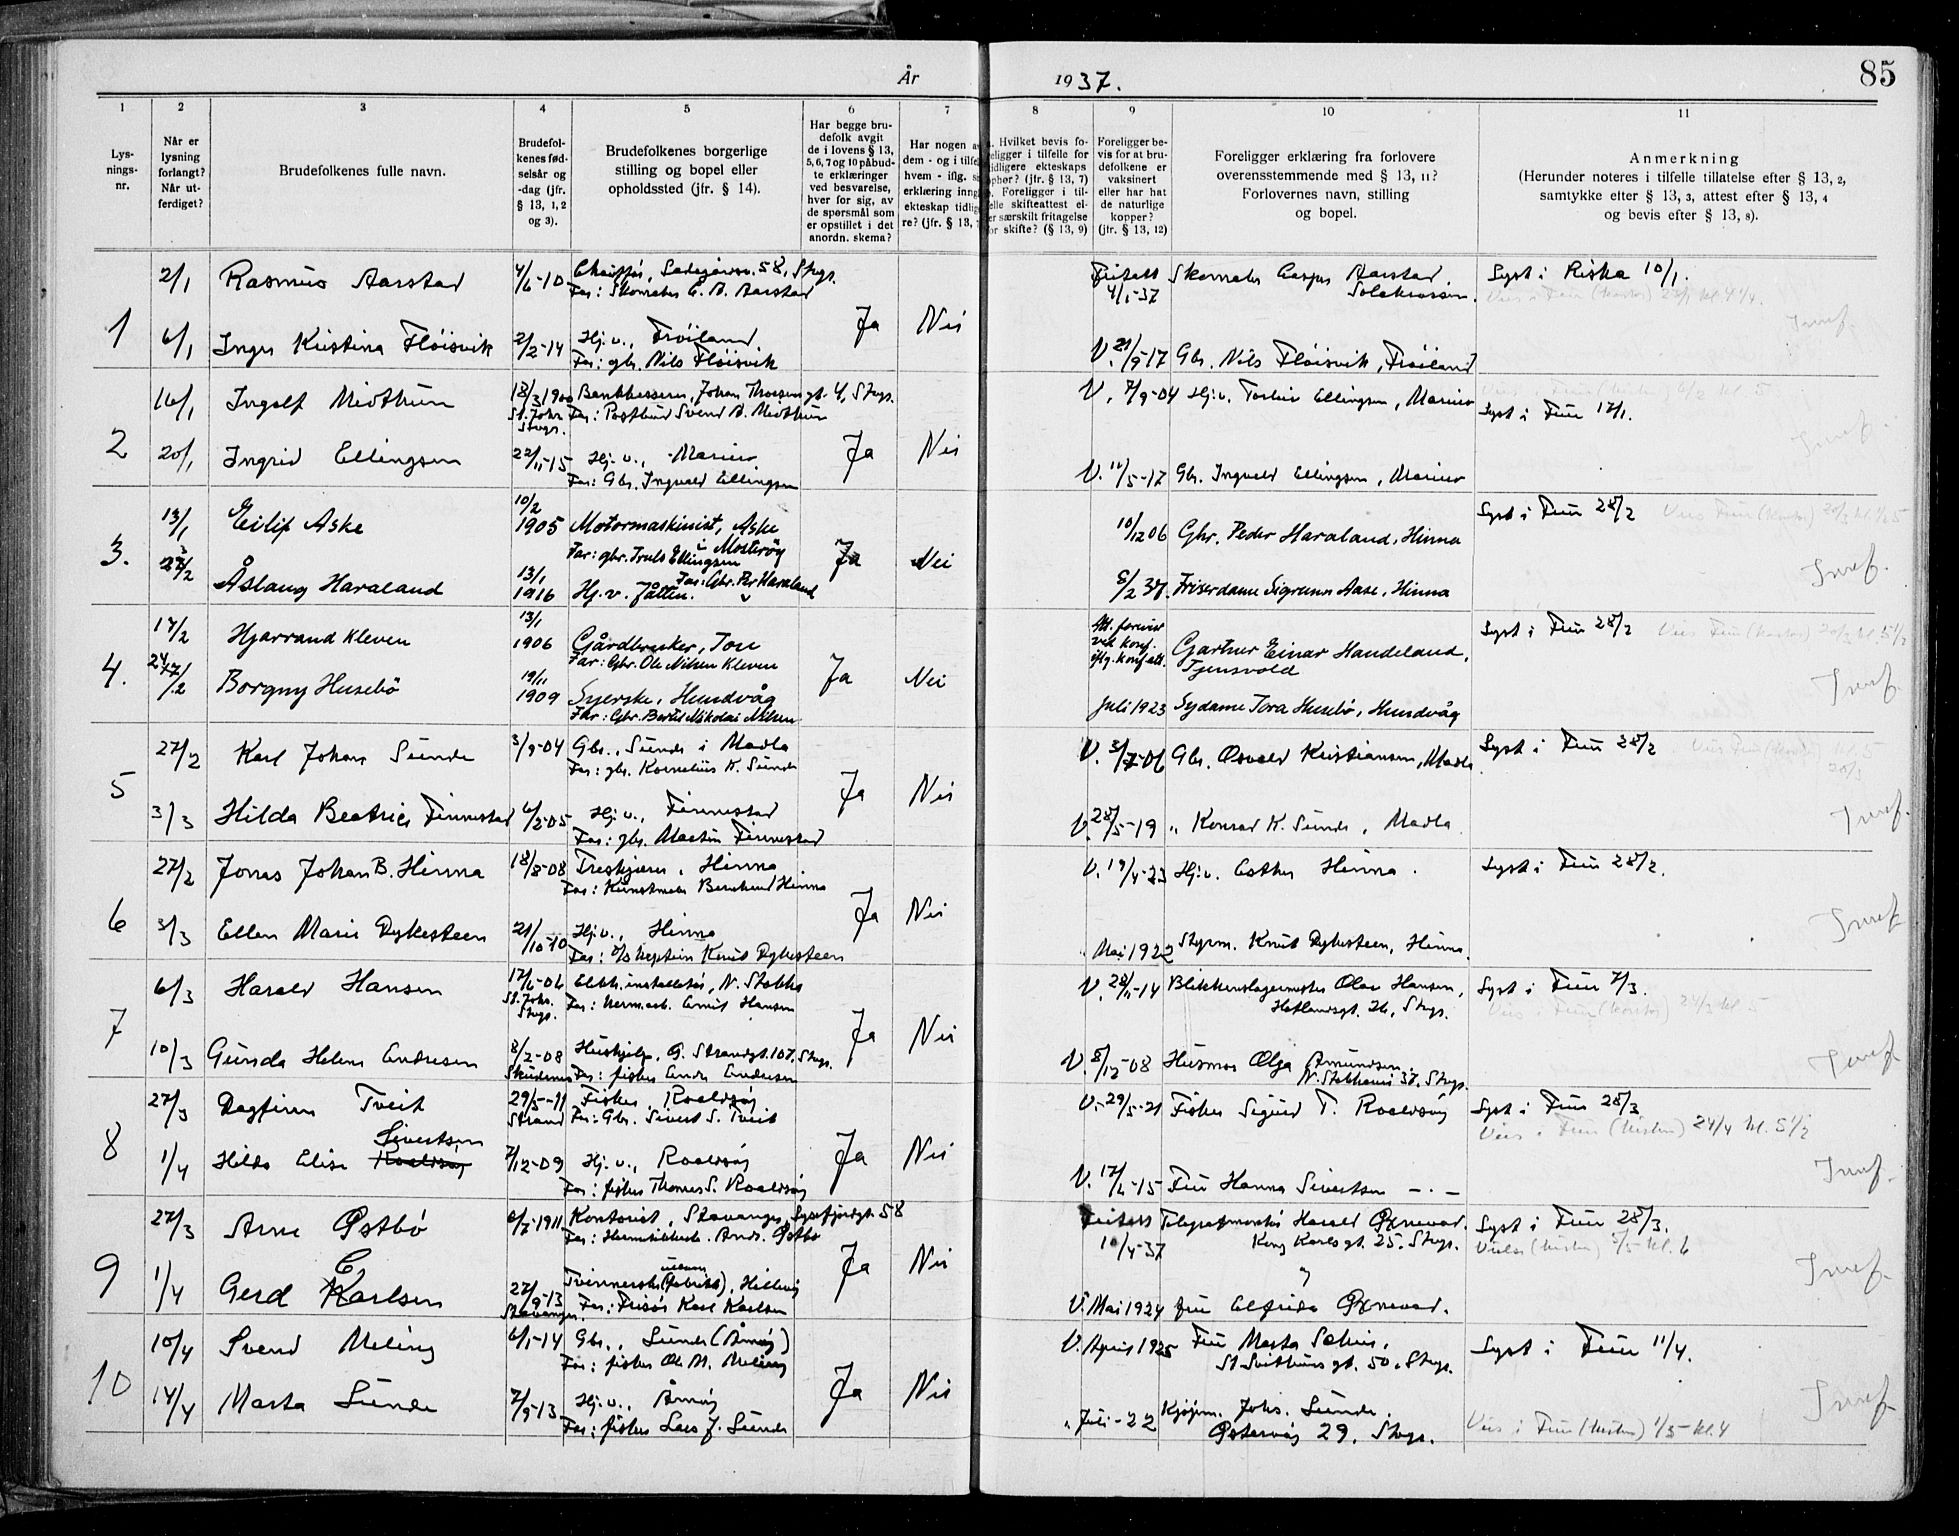 År 1937.
85
1 2 3 4 5 6 7 8 9 10 11
Lys-
nings-
nr.
Når er
lysning
forlangt?
Når ut-
ferdiget?
Brudefolkenes fulle navn.
Brudefol-
kenes fød-
selsår og
-dag (jfr.
§ 13, 1, 2
og 3).
Brudefolkenes borgerlige
stilling og bopel eller
opholdssted (jfr. § 14).
Har begge bru-
defolk avgit
de i lovens § 13,
5, 6, 7 og 10 påbud-
te erklæringer
ved besvarelse,
hver for sig, av
de spørsmål som
er opstillet i det
anordn. skema?
Har nogen a
dem - og i tilfel
hvem - iflg.
erklæring inng
ekteskap tidlig
re? (jfr. § 13,
Hvilket bevis fo-
religger i tilfelle for
tidligere ekteskaps
ophør? (jfr. § 13, 7)
Foreligger i til-
felle skifteattest el-
ler særskilt fritagelse
for skifte? (§ 13, 9)
Foreligger be-
vis for at bru-
defolkene er
vaksinert
eller har hat
de naturlige
kopper?
(jfr. § 13, 12)
Foreligger erklæring fra forlovere
overensstemmende med § 13, 11?
Forlovernes navn, stilling
og bopel.
Anmerkning
(Herunder noteres i tilfelle tillatelse efter § 13, 2,
samtykke efter § 13, 3, attest efter § 13, 4
og bevis efter § 13, 8).
1
2/1 Rasmus Aarstad 4/6-10 58, Stvgr.
Far: Skomaker E. A. Aarstad
Fritatt 4/1-37 Skomaker Aarstad,
Lyst i Riska 10/1.
6/1 Inger Kristina Fløisvik 2/2-14 Hj.v., Frøiland
Far: gbr. Nils Fløisvik
Ja Nei
V. 21/9-17 Gbr. Nils Fløisvik, Frøiland
2
16/1 Ingolf Midthun 18/3 1900 Bankkasserer, Johan Thorsensgt. 4, Stvgr.
St. Joh. Stvgr. Far: Postbud Svend A. Midthun
V. 7/9-04 Hj.v. Ellingsen, Mariero
Lyst i Frue 17/1.
20/1 Ingrid Ellingsen 22/11-15 Hj.v., Mariero
Far: Gbr. Ingvald Ellingsen
Ja Nei
V. 11/5-17 Gbr. Ingvald Ellingsen, Mariero
3.
13/1 Eilif Aske 10/2 1905 Motormaskinist, Aske
i Mosterøy
Far: gbr. Truls Ellingsen
10/12 06 Gbr. Peder Haraland, Hinna
Lyst i Frue 28/2
Åslaug Haraland 13/1 1916 Hj.v. Jåtten.
Far: Gbr. Per Haraland
Ja Nei
5/2 37. Friserdame Sigrunn Aase, Hinna
4.
17/2 Hjarrand Kleven 13/1 1906 Gårdbruker, Tou
Far: Gbr. Ole Nilsen Kleven
Att. forevist
ved konf.
iflg. konf.att.
Gartner Einar Handeland,
Tjensvold
Lyst i Frue 28/2
Borgny Husebø 19/11 1909 Syerske, Hundvåg
Far: Gbr. Bertel Nikolai Nilsen
Ja Nei
Juli 1923 Sydame Tora Husebø, Hundvåg
5
27/2 Karl Johan Sunde 3/9-04 Gbr., Sunde i Madla
Far: gbr. Kornelius K. Sunde
V. 3/7-06 Gbr. Osvald Kristiansen, Madla
Lyst i Frue 28/2
3/3 Hilda Beatrice Finnestad 6/2-05 Hj.v., Finnestad
Far: gbr. Martin Finnestad
Ja Nei
V. 28/5-19 „ Konrad K. Sunde, Madla
6
27/2 Jonas Johan B. Hinna 18/8-08 Treskjærer, Hinna
Far: Kunstmaler Bernhard Hinna
V. 19/4-23 Hj.v. Esther Hinna.
Lyst i Frue 28/2.
3/3 Ellen Marie Dykesteen 21/10-10 Hj.v., Hinna
Far: D/S kaptein Knut Dykesteen
Ja Nei
Mai 1922 Styrm. Knut Dykesteen, Hinna.
7
6/3 Harald Hansen 17/6-06 Elektr. installatør, N. Stokka
St. Joh. Stvgr.
V. 28/11-14 Blikkenslagermester Olav Hansen,
Hetlandsgt. 26, Stvgr.
Lyst i Frue 7/3.
10/3 Gunda Helene Andresen 8/2-08 Hushjelp, Ø. Strandgt. 107, Stvgr.
Skudenes
Ja Nei
V. 8/12-08 Husmor Olga Amundsen
N. Stokkavei 37, Stvgr.
8
27/3 Dagfinn Tveit 29/5-11 Fisker, Roaldsøy
Strand Far: Gbr. Sivert S. Tveit
V. 29/5-21 Fisker Sigurd T. Roaldsøy
Lyst i Frue 28/3
Vies i Frue (kirken) 24/4 kl. 5 1/2
Sivertsen
1/4 Hilda Elise Roaldsøy 7/12-09 Hj.v., Roaldsøy
Far: fisker Thomas S. Roaldsøy
Ja Nei
V. 17/6-15 Fru Hanna Sivertsen — " —
9
27/3 Arne Østbø 6/7-1911 Kontorist, Stavanger, Lysefjordgt. 58
Far: Hermetikkarb. Andr. Østbø
Fritatt 10/4-37 Telegrafmontør Harald Øxnevad.
Kong Karlsgt. 25. Stvgr.
Lyst i Frue 28/3.
1/4 Gerd Karlsen 27/9-13 Stavanger Tvinnerske (fabrikk), Hillevåg
Far: Frisør Karl Karlsen
Ja Nei
V. Mai 1924 fru Alfrida Øxnevad.
10
10/4 Svend Meling 6/1-14 Gbr., Sunde (Åmøy)
Far: fisker Ole M. Meling
V. April 1925 Fru Marta
St. Svithuns gt. 50, Stvgr.
Lyst i Frue 11/4.
14/4 Marta Sunde 7/9-13 Hj.v., Åmøy
Far: fisker Lars J. Sunde
Ja Nei
„ Juli-22 Kjøpm. Johs. Sunde.
Østervåg 29. Stvgr.
Vies i Frue (kirken) 1/5 kl. 4